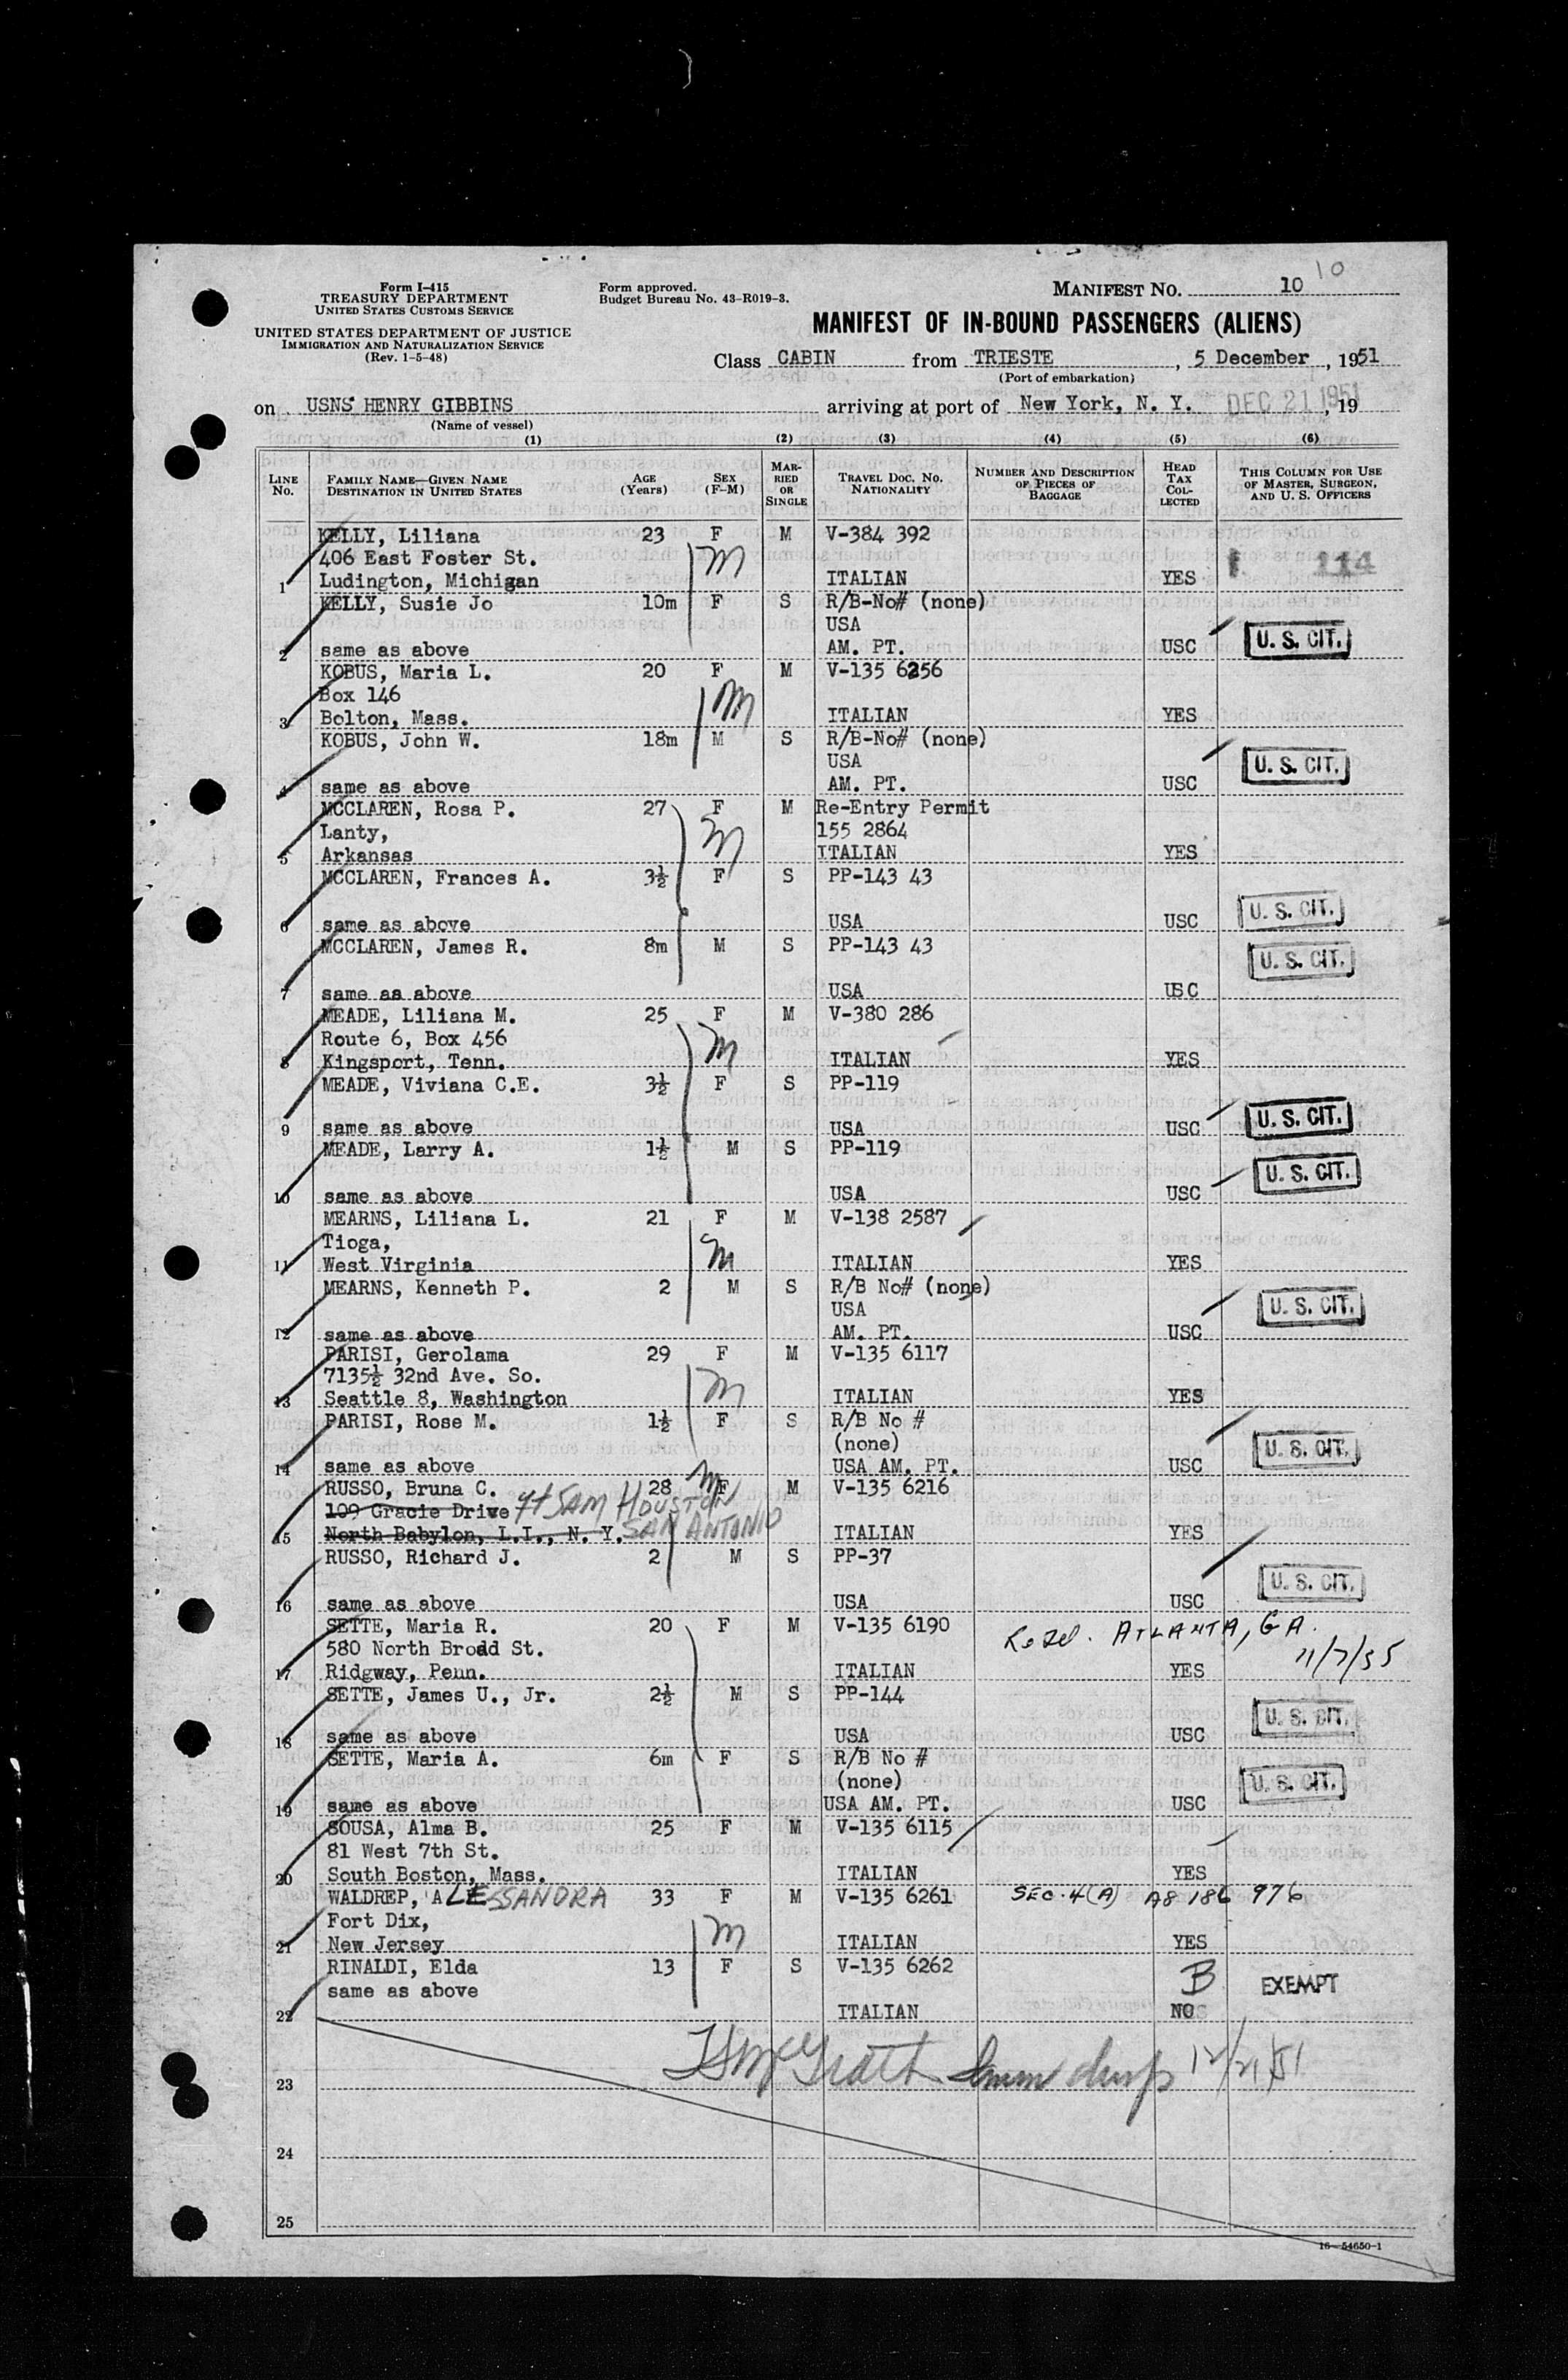 Form I-415
TREASURY DEPARTMENT
UNITED STATES CUSTOMS SERVICE
UNITED STATES DEPARTMENT OF JUSTICE
IMMIGRATION AND NATURALIZATION SERVICE
(Rev. 1-5-48)
Form approved.
Budget Bureau No. 43-R019-3.
MANIFEST NO. 10 10
MANIFEST OF IN-BOUND PASSENGERS (ALIENS)
Class CABIN from TRIESTE, 5 December, 1951
(Port of embarkation)
on USNS HENRY GIBBINS arriving at port of New York, N. Y. DEC 21 1951, 19
(Name of vessel)
(1) (2) (3) (4) (5) (6)
LINE No. FAMILY NAME—GIVEN NAME DESTINATION IN UNITED STATES AGE (YEARS) SEX (F-M) MARRIED OR SINGLE TRAVEL DOC. NO. NATIONALITY NUMBER AND DESCRIPTION OF PIECES OF BAGGAGE HEAD TAX COLLECTED THIS COLUMN FOR USE OF MASTER, SURGEON, AND U. S. OFFICERS
KELLY, Liliana 23 F M V-384 392
406 East Foster St. M
1 Ludington, Michigan ITALIAN YES 114
KELLY, Susie Jo 10m F S R/B-No# (none)
USA
2 same as above AM. PT. USC U. S. CIT.
KOBUS, Maria L. 20 F M V-135 6256
Box 146 M
3 Bolton, Mass. ITALIAN YES
KOBUS, John W. 18m M S R/B-No# (none)
USA
4 same as above AM. PT. USC U. S. CIT.
MCCLAREN, Rosa P. 27 F M Re-Entry Permit
Lanty, M 155 2864
5 Arkansas ITALIAN YES
MCCLAREN, Frances A. 3½ F S PP-143 43
6 same as above USA USC U. S. CIT.
MCCLAREN, James R. 8m M S PP-143 43
U. S. CIT.
7 same aa above USA USC
MEADE, Liliana M. 25 F M V-380 286
Route 6, Box 456 M
8 Kingsport, Tenn. ITALIAN YES
MEADE, Viviana C.E. 3½ F S PP-119
9 same as above USA USC U. S. CIT.
MEADE, Larry A. 1½ M S PP-119
10 same as above USA USC U. S. CIT.
MEARNS, Liliana L. 21 F M V-138 2587
Tioga, M
11 West Virginia ITALIAN YES
MEARNS, Kenneth P. 2 M S R/B No# (none)
USA U. S. CIT.
12 same as above AM. PT. USC
PARISI, Gerolama 29 F M V-135 6117
7135½ 32nd Ave. So. M
13 Seattle 8, Washington ITALIAN YES
PARISI, Rose M. 1½ F S R/B No #
(none) U. S. CIT.
14 same as above USA AM. PT. USC
RUSSO, Bruna C. 28 M F M V-135 6216
109 Gracie Drive Ft SAM HOUSTON
15 North Babylon, L.I., N. Y. SAN ANTONIO ITALIAN YES
RUSSO, Richard J. 2 M S PP-37
U. S. CIT.
16 same as above USA USC
SETTE, Maria R. 20 F M V-135 6190 ATLANTA, GA.
580 North Broad St. 11/7/55
17 Ridgway, Penn. ITALIAN YES
SETTE, James U., Jr. 2½ M S PP-144
18 same as above USA USC U. S. CIT.
SETTE, Maria A. 6m F S R/B No #
(none) U. S. CIT.
19 same as above USA AM. PT. USC
SOUSA, Alma B. 25 F M V-135 6115
81 West 7th St.
20 South Boston, Mass. ITALIAN YES
WALDREP, ALESSANDRA 33 F M V-135 6261 SEC. 4(A) A8 186 976
Fort Dix, M
21 New Jersey ITALIAN YES
RINALDI, Elda 13 F S V-135 6262
same as above B EXEMPT
22 ITALIAN NO
12/21/51
23
24
25
16—54650-1